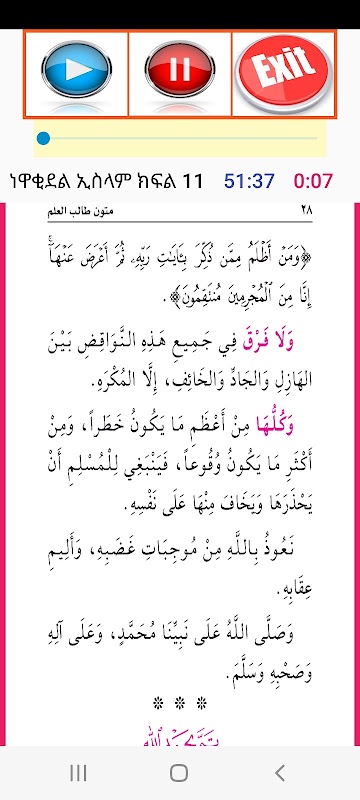 Exit
ነዋቂደል ኢስላም ክፍል 11 51:37 0:07
٢٨ متون طالب العلم
﴿وَمَنْ أَظْلَمُ مِمَّن ذُكِّرَ بِـَٔايَـٰتِ رَبِّهِۦ ثُمَّ أَعْرَضَ عَنْهَآۚ
إِنَّا مِنَ ٱلْمُجْرِمِينَ مُنتَقِمُونَ﴾.
وَلَا فَرْقَ فِي جَمِيعِ هَذِهِ النَّوَاقِضِ بَيْنَ
الهَازِلِ وَالجَادِّ وَالخَائِفِ، إِلَّا المُكْرَهِ.
وَكُلُّهَا مِنْ أَعْظَمِ مَا يَكُونُ خَطَراً، وَمِنْ
أَكْثَرِ مَا يَكُونُ وُقُوعاً، فَيَنْبَغِي لِلْمُسْلِمِ أَنْ
يَحْذَرَهَا وَيَخَافَ مِنْهَا عَلَى نَفْسِهِ.
نَعُوذُ بِاللَّهِ مِنْ مُوجِبَاتِ غَضَبِهِ، وَأَلِيمِ
عِقَابِهِ.
وَصَلَّى اللَّهُ عَلَى نَبِيِّنَا مُحَمَّدٍ، وَعَلَى آلِهِ
وَصَحْبِهِ وَسَلَّمَ.
* * *